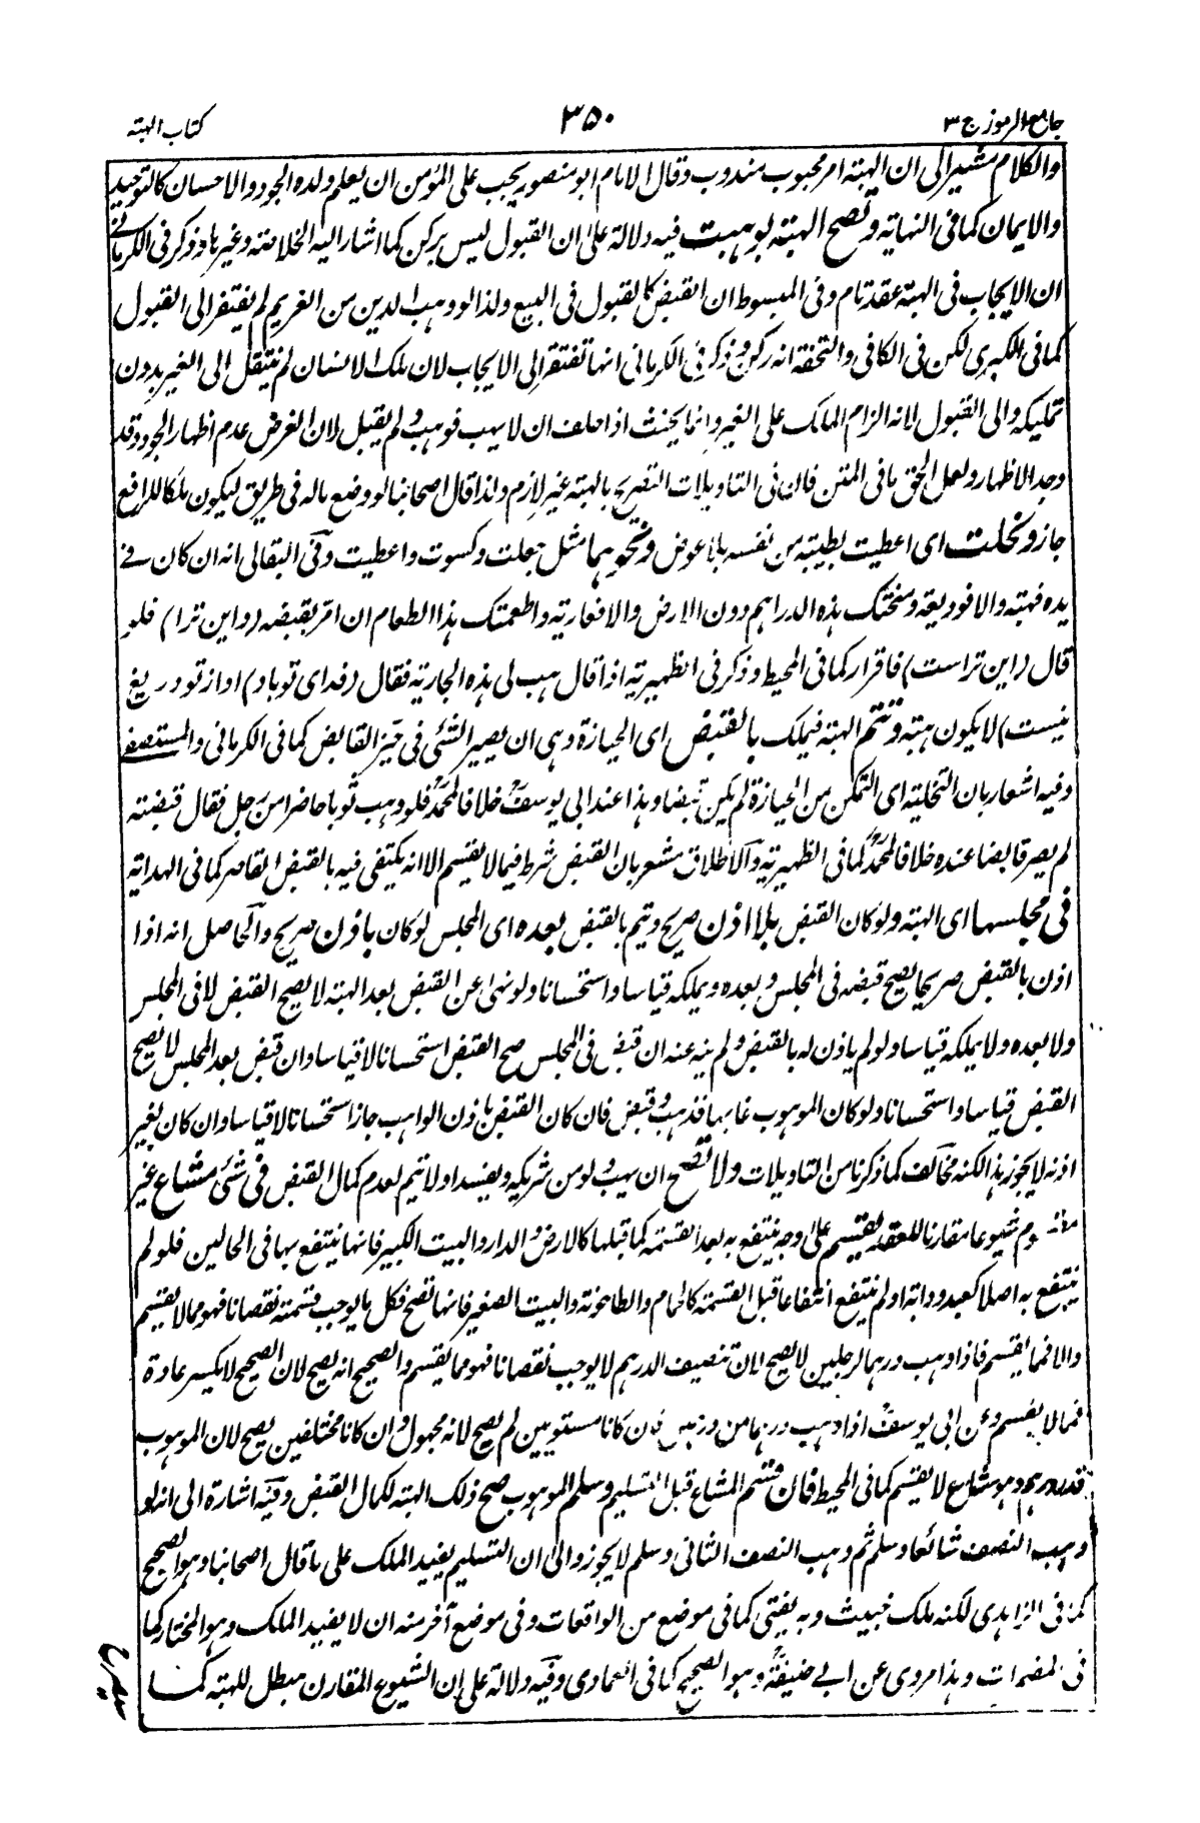 جامع الرموز ج ٣
٣٥٠
كتاب الهبة
والكلام مشير الى ان الهبة امر محبوب مندوب وقال الامام ابو منصور يجب على المؤمن ان يعلم ولده الجود والاحسان كالتوحيد
والايمان كما فى النهاية وتصح الهبة بوهبت فيه دلالة على ان القبول ليس بركن كما اشار اليه الخلاصة وغيرها وذكر فى الكرمانى
ان الايجاب فى الهبة عقد تام وفى المبسوط ان القبض كالقبول فى البيع ولذا لو وهب الدين من الغريم لم يفتقر الى القبول
كما فى الكبرى لكن فى الكافى والتحفة انه ركن وذكر فى الكرمانى انها تفتقر الى الايجاب لان ملك الانسان لم ينتقل الى الغير بدون
تمليكه والى القبول لانه الزام الملك على الغير وانما يحنث اذا حلف ان لا يهب فوهب ولم يقبل لان الغرض عدم اظهار الجود وقد
وجد الاظهار ولعل الحق ما فى المتن فان فى التاويلات التصريح بالهبة غير لازم ولذا قال اصحابنا لو وضع ماله فى طريق ليكون ملكا للرافع
جاز ونحلت اى اعطيت بطيبة من نفسه بلا عوض ونحوهما مثل جعلت وكسوت واعطيت وفى البقالى انه ان كان فى
يده فهبة والا فوديعة ومنحتك هذه الدراهم دون الارض والا فعارية واطعمتك هذا الطعام ان امر بقبضه (واين ترا) فلو
قال (اين تراست) فاقرار كما فى المحيط وذكر فى الظهيرية اذا قال هب لى هذه الجارية فقال (فداى تو باد) او (از تو دريغ
نيست) لا يكون هبة وتتم الهبة فيملك بالقبض اى الحيازة وهى ان يصير الشئ فى حيز القابض كما فى الكرمانى والمستصفى
وفيه اشعار بان التخلية اى التمكن من الحيازة لم يكن قبضا وهذا عند ابى يوسف خلافا لمحمد فلو وهب ثوبا حاضرا من رجل فقال قبضته
لم يصر قابضا عنده خلافا لمحمد كما فى الظهيرية والاطلاق مشعر بان القبض شرط فيما لا يقسم الا انه يكتفى فيه بالقبض القاصر كما فى الهداية
فى مجلسها اى الهبة ولو كان القبض بلا اذن صريح وتيم بالقبض بعده اى المجلس لو كان باذن صريح والحاصل انه اذا
اذن بالقبض صريحا يصح قبضه فى المجلس وبعده ويملكه قياسا واستحسانا ولو نهى عن القبض بعد الهبة لا يصح القبض لا فى المجلس
ولا بعده ولا يملكه قياسا ولو لم ياذن له بالقبض ولم ينه عنه ان قبض فى المجلس صح القبض استحسانا لا قياسا وان قبض بعد المجلس لا يصح
القبض قياسا واستحسانا ولو كان الموهوب غائبا فذهب وقبض فان كان القبض باذن الواهب جاز استحسانا لا قياسا وان كان بغير
اذنه لا يجوز هذا لكنه مخالف كما ذكرنا من التاويلات ولا تصح ان يهب ولو من شريكه ويفسد او لا تتم لعدم كمال القبض فى شئ مشاع غير
شيوعا مقارنا للعقد يقسم على وجه ينتفع به بعد القسمة كما قبلها كالارض والدار والبيت الكبير فانها ينتفع بها فى الحالين فلو لم
ينتفع به اصلا كعبد ودابة او لم ينتفع انتفاعا قبل القسمة كالحمام والطاحونة والبيت الصغير فانها تصح فكل ما يوجب قسمته نقصانا فهو مما لا يقسم
والا فمما يقسم فاذا وهب درهما لرجلين لا يصح لان تنصيف الدرهم لا يوجب نقصانا فهو مما يقسم والصحيح انه يصح لان الصحيح لا يكسر عادة
فمما لا يقسم وعن ابى يوسف اذا وهب درهما من درهمين فان كانا مستويين لم يصح لانه مجهول وان كانا مختلفين يصح لان الموهوب
قدر درهم وهو مشاع لا يقسم كما فى المحيط فان قسم المشاع قبل التسليم وسلم الموهوب صح ذلك الهبة لكمال القبض وفيه اشارة الى انه لو
وهب النصف شائعا وسلم ثم وهب النصف الثانى وسلم لا يجوز والى ان التسليم يفيد الملك على ما قال اصحابنا وهو الصحيح
كما فى الزاهدى لكنه ملك خبيث وبه يفتى كما فى موضع من الواقعات وفى موضع آخر منه ان لا يفيد الملك وهو المختار كما
فى المضمرات وهذا مروى عن ابى حنيفة وهو الصحيح كما فى العمادى وفيه دلالة على ان الشيوع المقارن مبطل للهبة كما